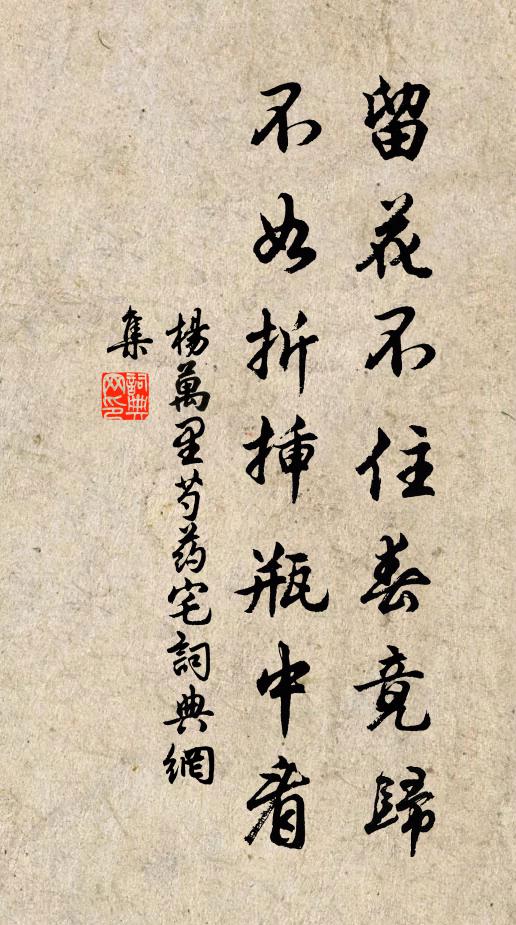 留花不住春竟歸
不如折挿瓶中看
楊萬里芍药宅詞典網
集
詞典
网印